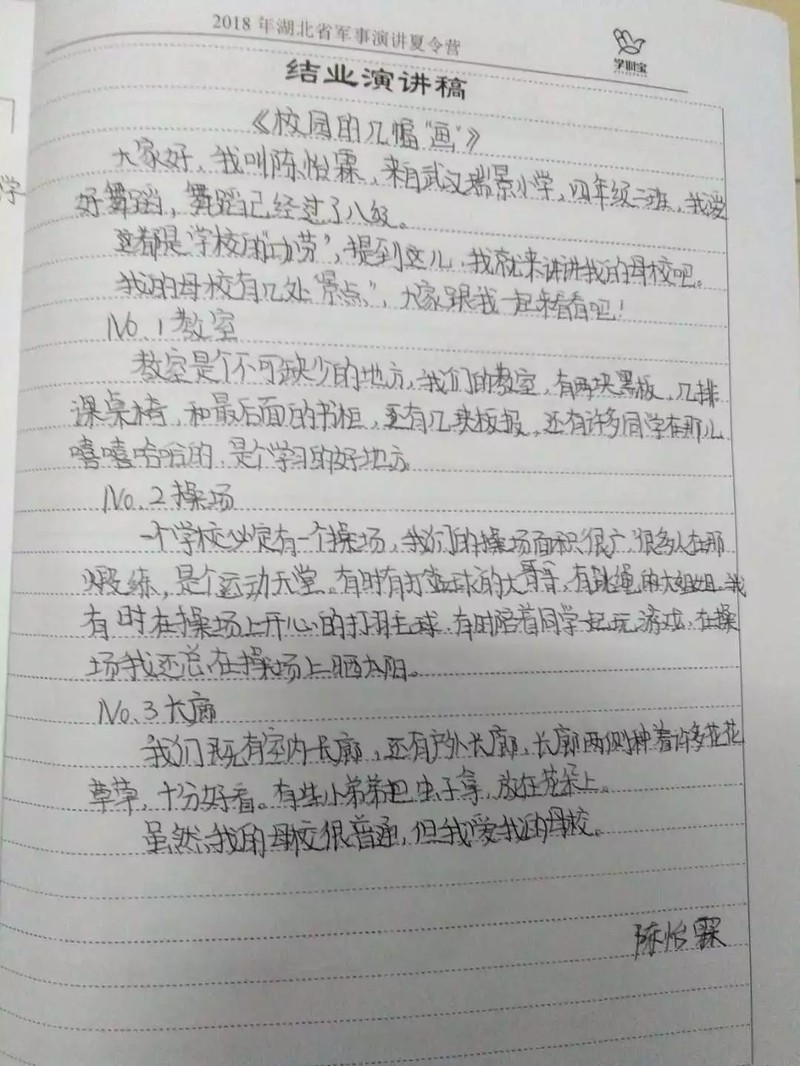 2018 年湖北省军事演讲夏令营
学训宝
结业演讲稿
《校园的几幅"画"》
大家好，我叫陈怡霖，来自武汉瑞景小学，四年级二班，我爱
好舞蹈，舞蹈已经过了八级。
这都是学校的"功劳"，提到这儿，我就来讲讲我的母校吧。
我的母校有几处"景点"，大家跟我一起来看看吧！
No.1教室
教室是个不可缺少的地方，我们的教室，有两块黑板，几排
课桌椅，和最后面的书柜，还有几块板报，还有许多同学在那儿
嘻嘻哈哈的，是个学习的好地方。
No.2操场
一个学校必定有一个操场，我们的操场面积很广，很多人在那
锻练，是个运动天堂。有时有打篮球的大哥哥，有跳绳的大姐姐，我
有时在操场上开心的打羽毛球，有时陪着同学一起玩游戏，在操
场我还总在操场上晒太阳。
No.3长廊
我们既有室内长廊，还有户外长廊，长廊两侧种着许多花花
草草，十分好看。有些小弟弟把虫子拿，放在花朵上。
虽然我的母校很普通，但我爱我的母校。
陈怡霖
学